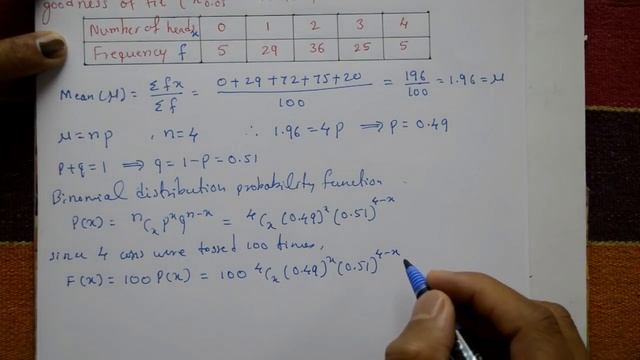 goodness of fit (χ²0.05
Number of heads x 0 1 2 3 4
Frequency f 5 29 36 25 5
Mean (μ) = Σfx / Σf = 0+29+72+75+20 / 100 = 196 / 100 = 1.96 = μ
μ = np , n = 4 ∴ 1.96 = 4p ⟹ p = 0.49
p+q = 1 ⟹ q = 1-p = 0.51
Binomial distribution probability function
P(x) = ⁿCₓ pˣ qⁿ⁻ˣ = ⁴Cₓ (0.49)ˣ (0.51)⁴⁻ˣ
since 4 coins were tossed 100 times,
F(x) = 100 P(x) = 100 ⁴Cₓ (0.49)ˣ (0.51)⁴⁻ˣ